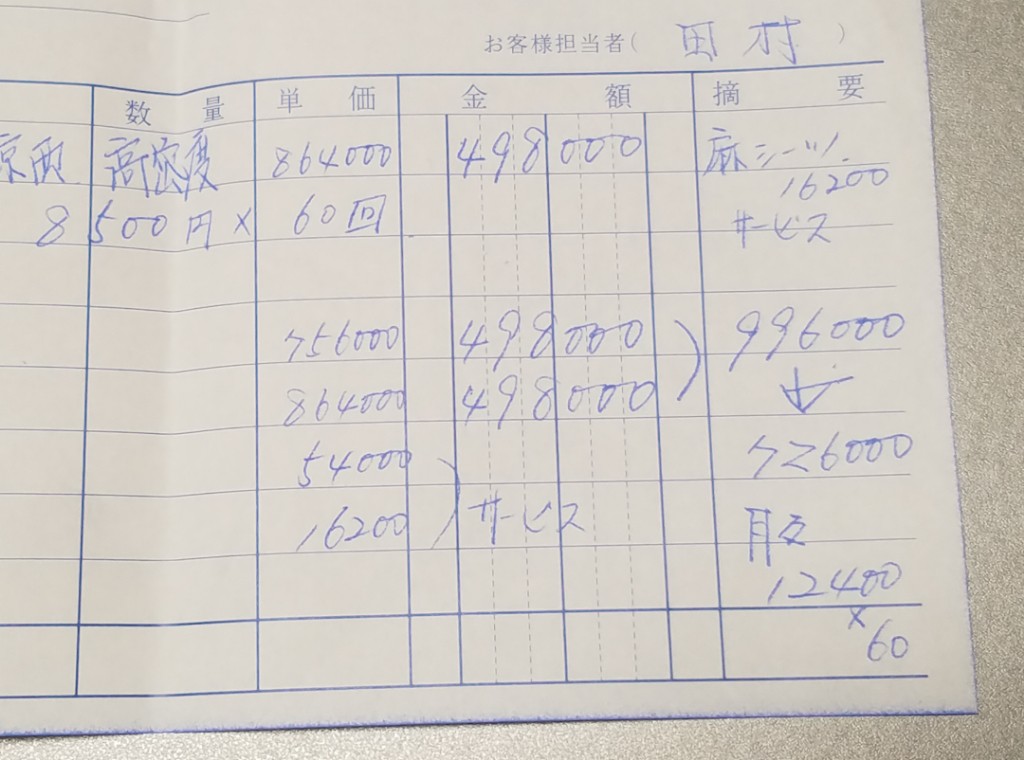 お客様担当者( 田村 )
数量 単価 金額 摘要
高密度 864000 498000 麻シーツ
16200
8500円× 60回 サービス
756000 498000 996000
864000 498000
54000 726000
16200 サービス
月々
12400
×
60